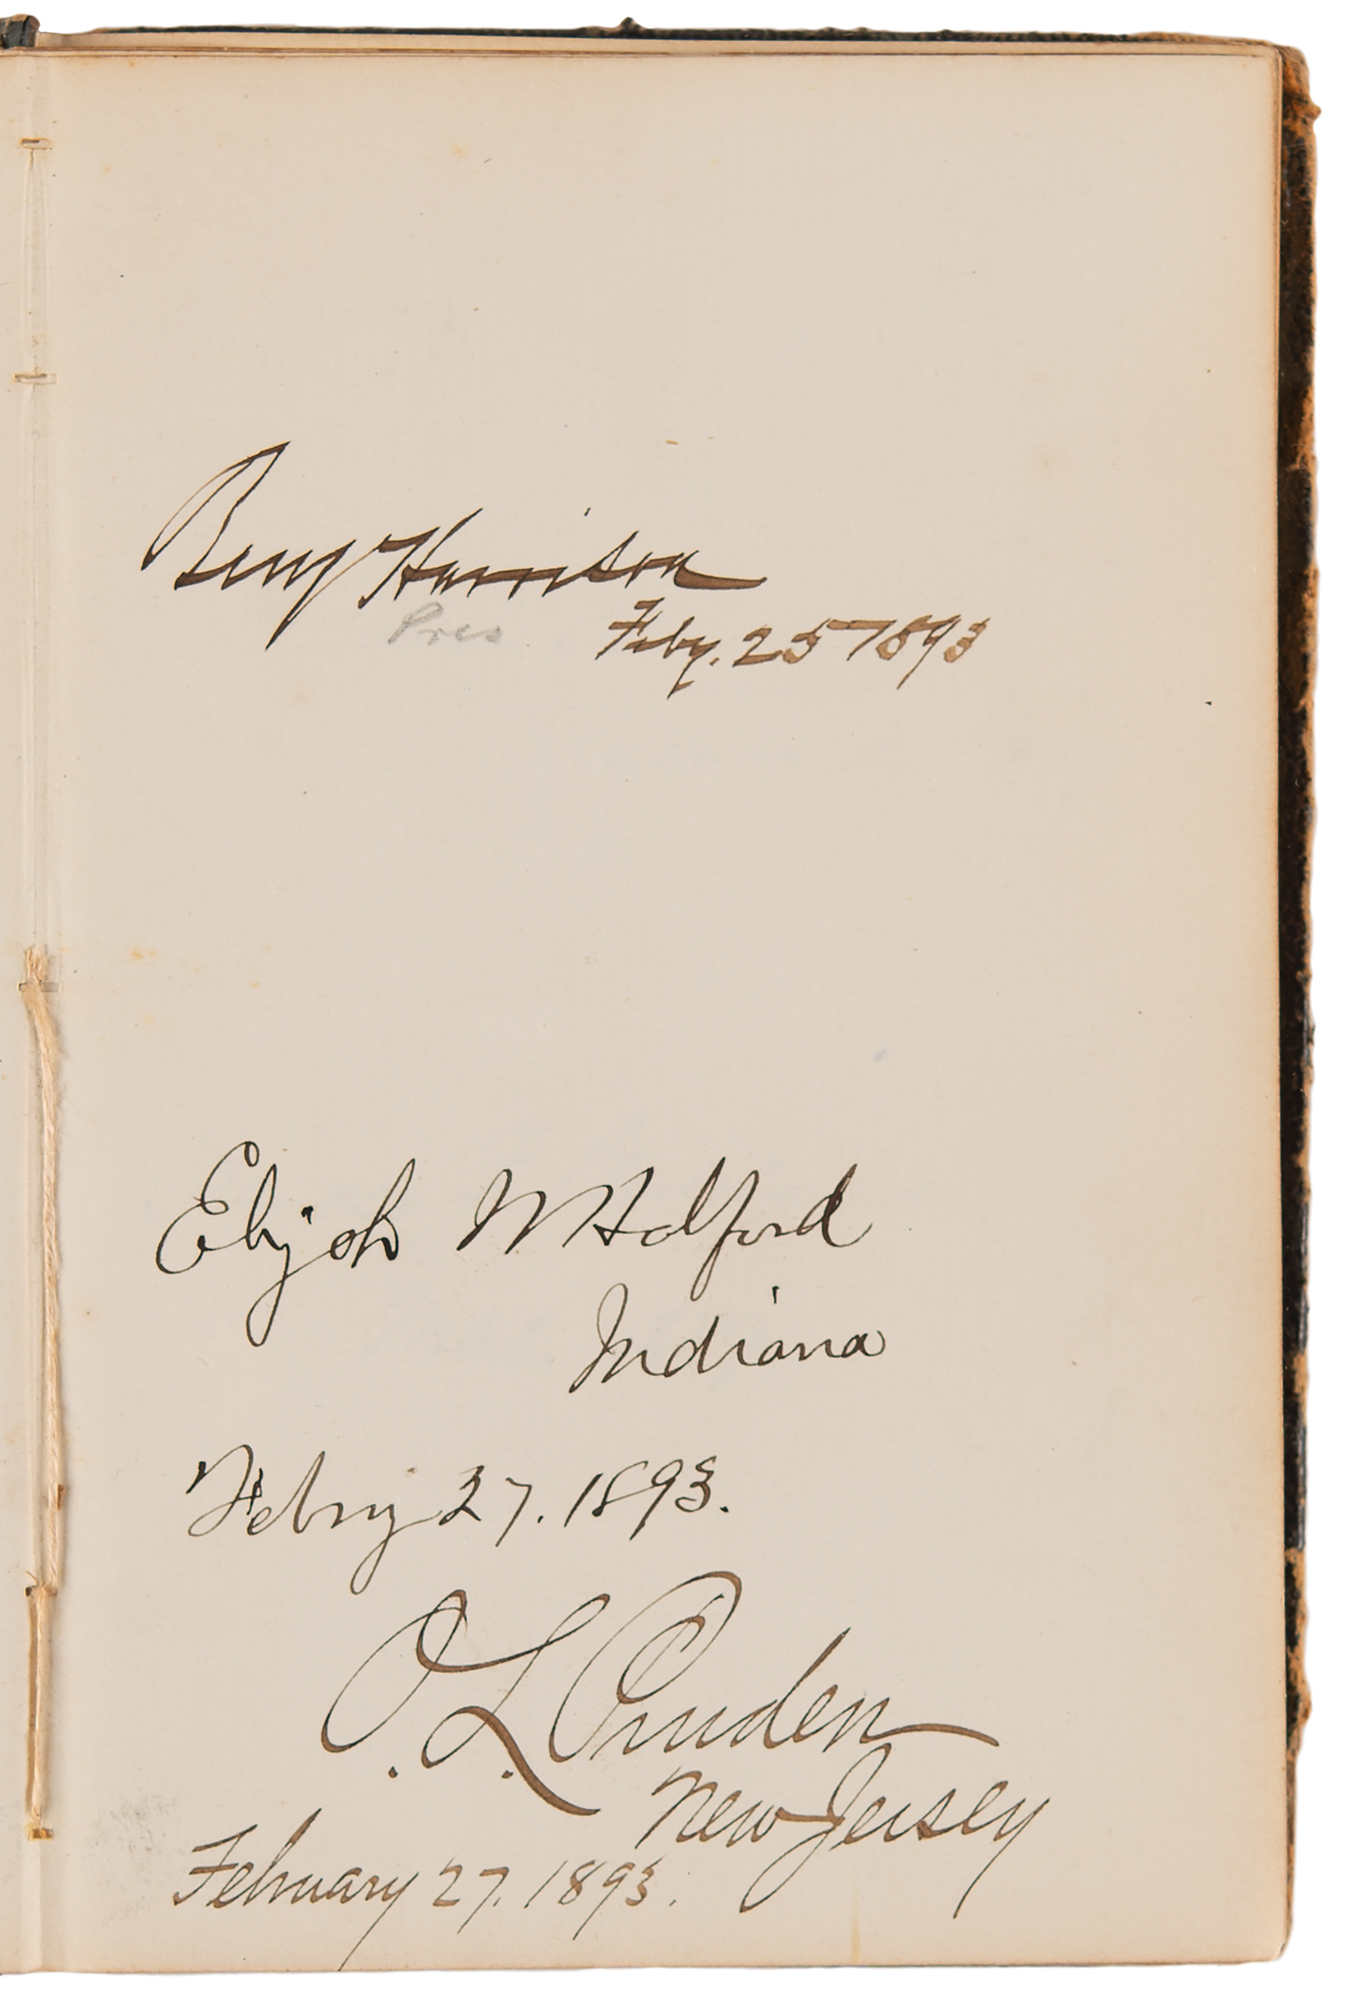 Benj Harrison
Pres
Feby. 25 1893
Elijah W Halford
Indiana
Febry 27. 1893.
O. L. Pruden
New Jersey
February 27. 1893.